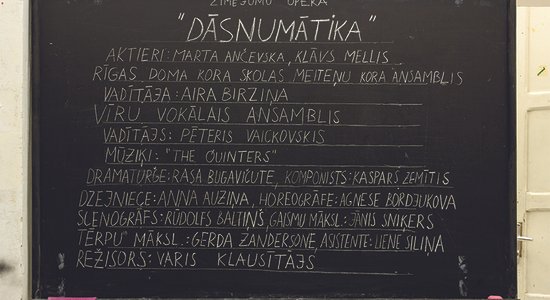 ZĪMĒJUMU OPERA
"DĀSNUMĀTIKA"
AKTIERI: MARTA ANČEVSKA, KLĀVS MELLIS
RĪGAS DOMA KORA SKOLAS MEITEŅU KORA ANSAMBLIS
VADĪTĀJA: AIRA BIRZIŅA
VĪRU VOKĀLAIS ANSAMBLIS
VADĪTĀJS: PĒTERIS VAICKOVSKIS
MŪZIĶI: "THE QUINTERS"
DRAMATURĢE: RASA BUGAVIČUTE, KOMPONISTS: KASPARS ZEMĪTIS
DZEJNIECE: ANNA AUZIŅA, HOREOGRĀFE: AGNESE BORDJUKOVA
SCENOGRĀFS: RŪDOLFS BALTIŅŠ, GAISMU MĀKSL.: JĀNIS SNIĶERS
TĒRPU MĀKSL.: GERDA ZANDERSONE, ASISTENTE: LIENE SILIŅA
REŽISORS: VARIS KLAUSĪTĀJS